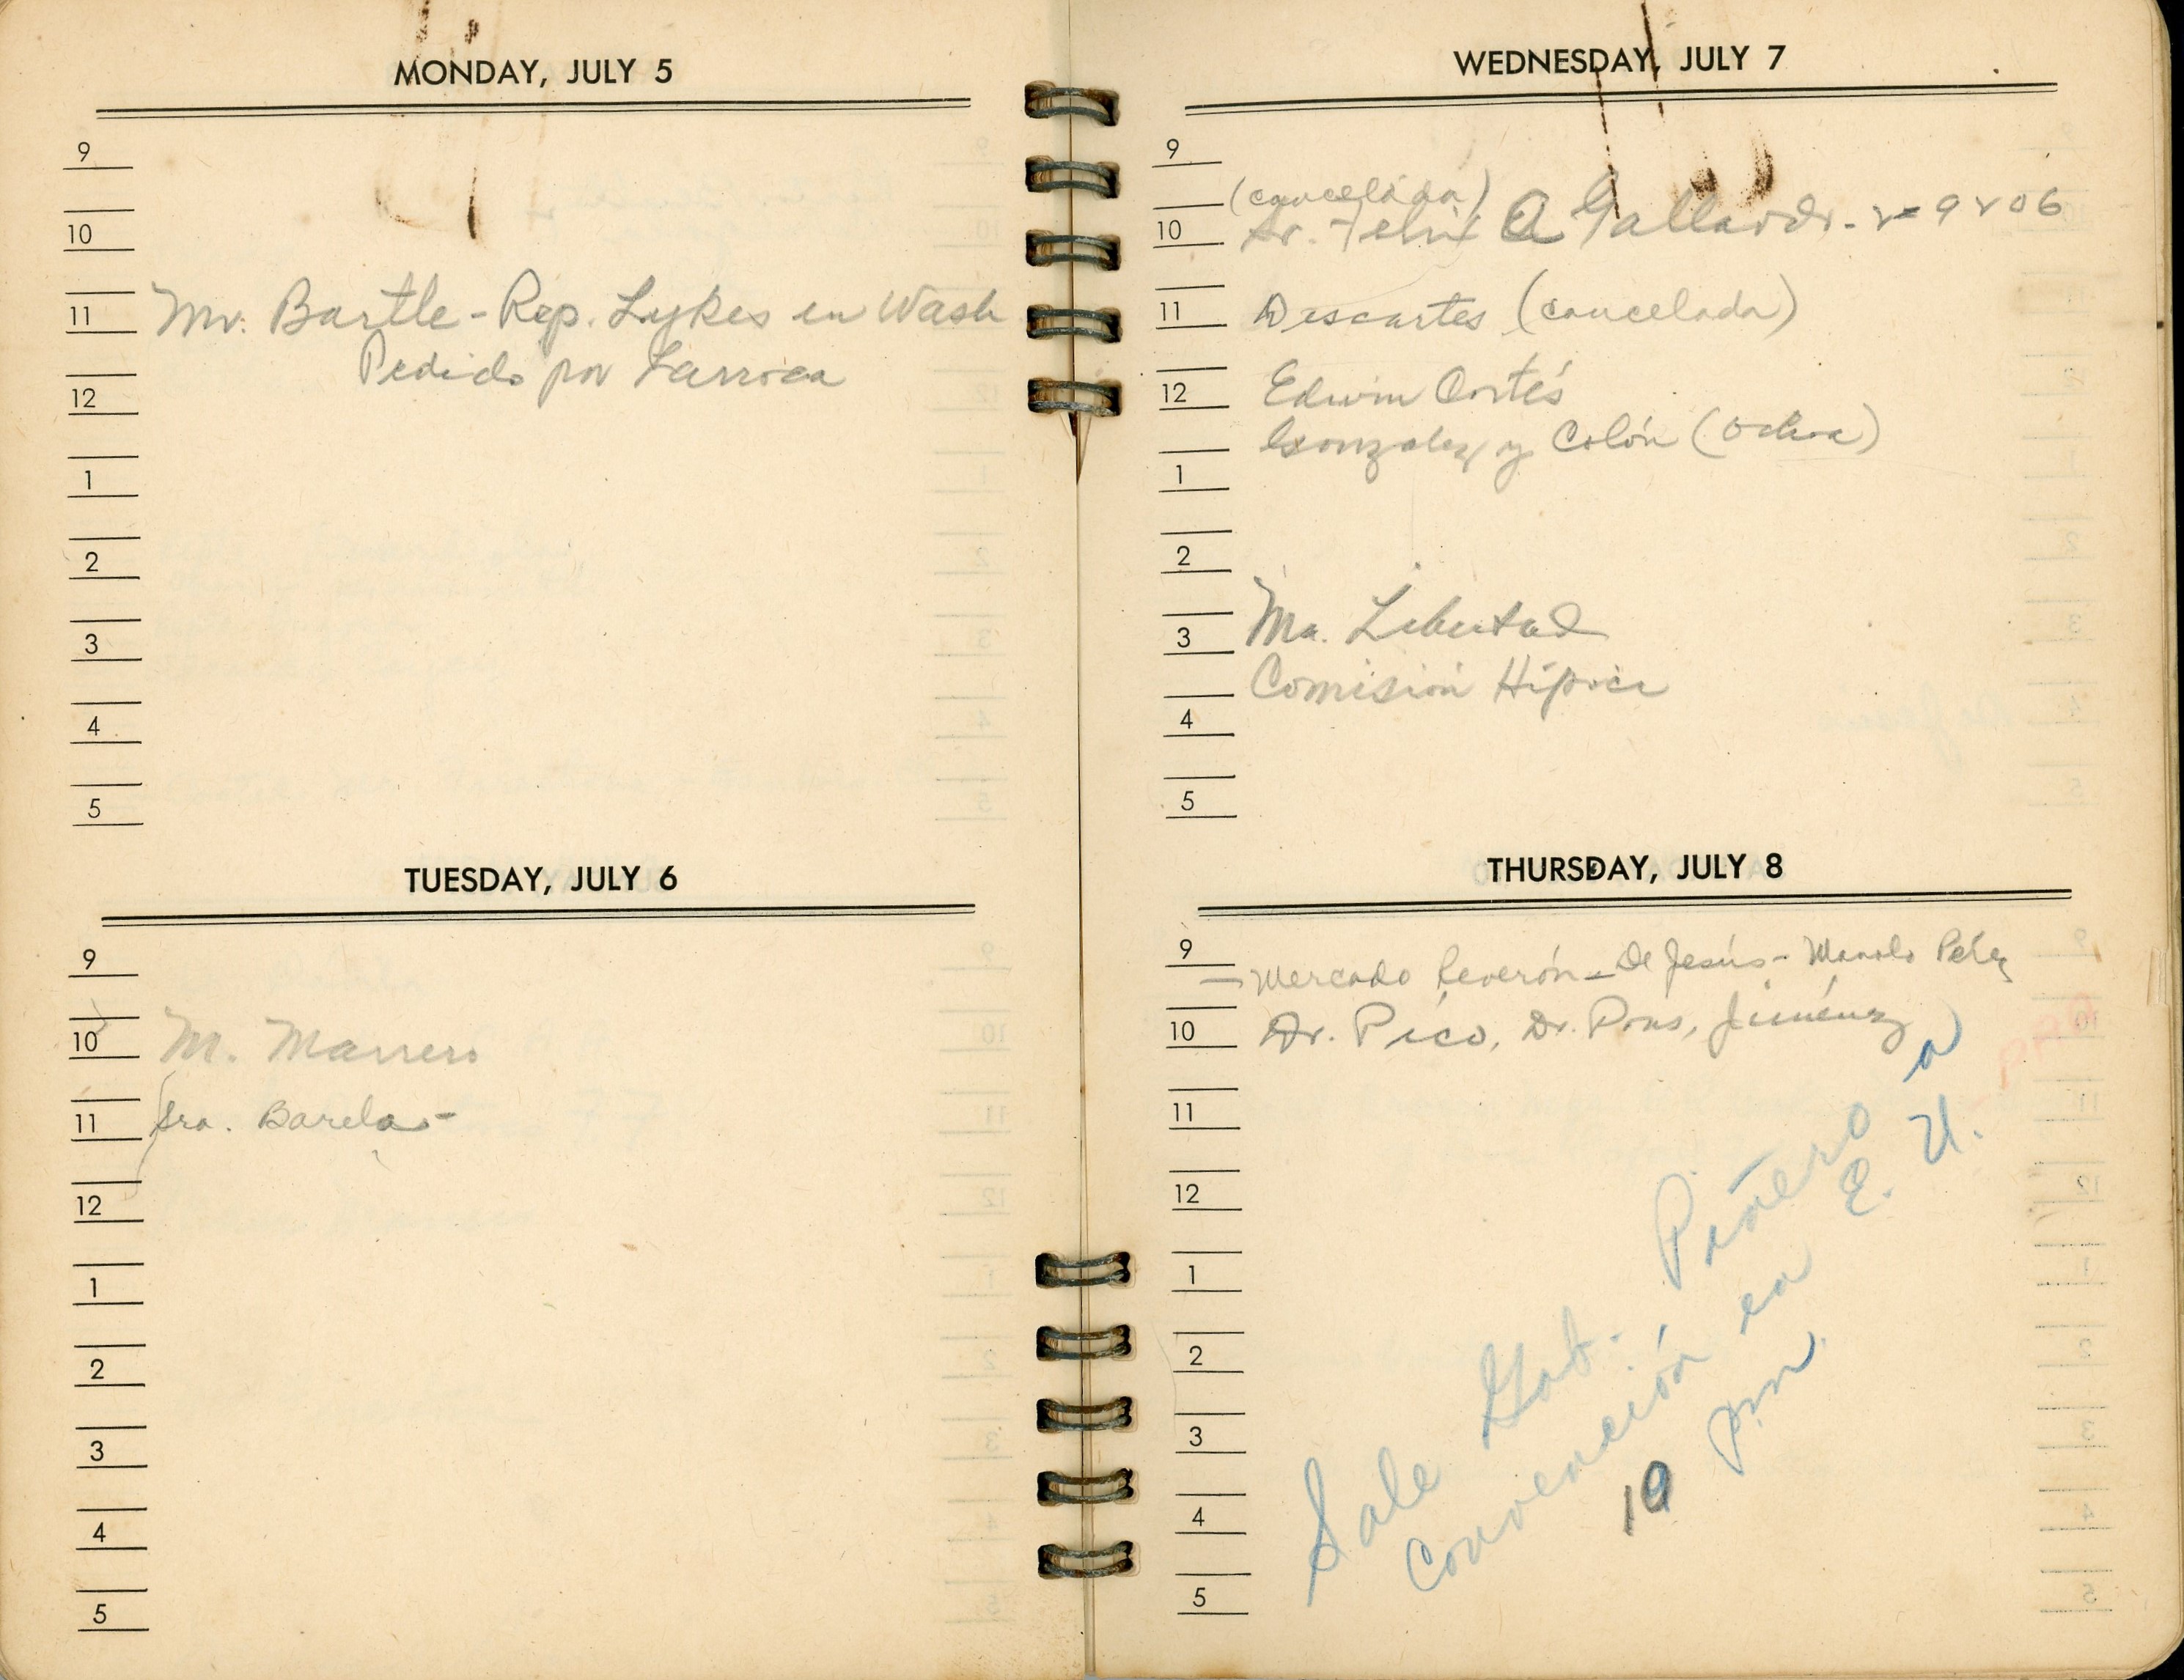 MONDAY, JULY 5
9
10
11 Mr. Bartle - Rep. Lykes en Wash
Pedido por Larroca
12
1
2
3
4
5
TUESDAY, JULY 6
9
10 M. Marrero
11 Sra. Barela -
12
1
2
3
4
5
WEDNESDAY, JULY 7
9
(cancelada)
10 Sr. Felix A Gallardo - 2-9206
11 Descartes (cancelada)
12 Edwin Cortés
Gonzalez y Colón (Ochoa)
1
2
3 Ma. Libertad
Comisión Hípica
4
5
THURSDAY, JULY 8
9
Mercado Reverón - De Jesús - Manolo Pérez
10 Dr. Pico, Dr. Pons, Jiménez
11
12
1
2
3
4
5
Sale Gob. Piñero a
Convención en E. U.
10 pm